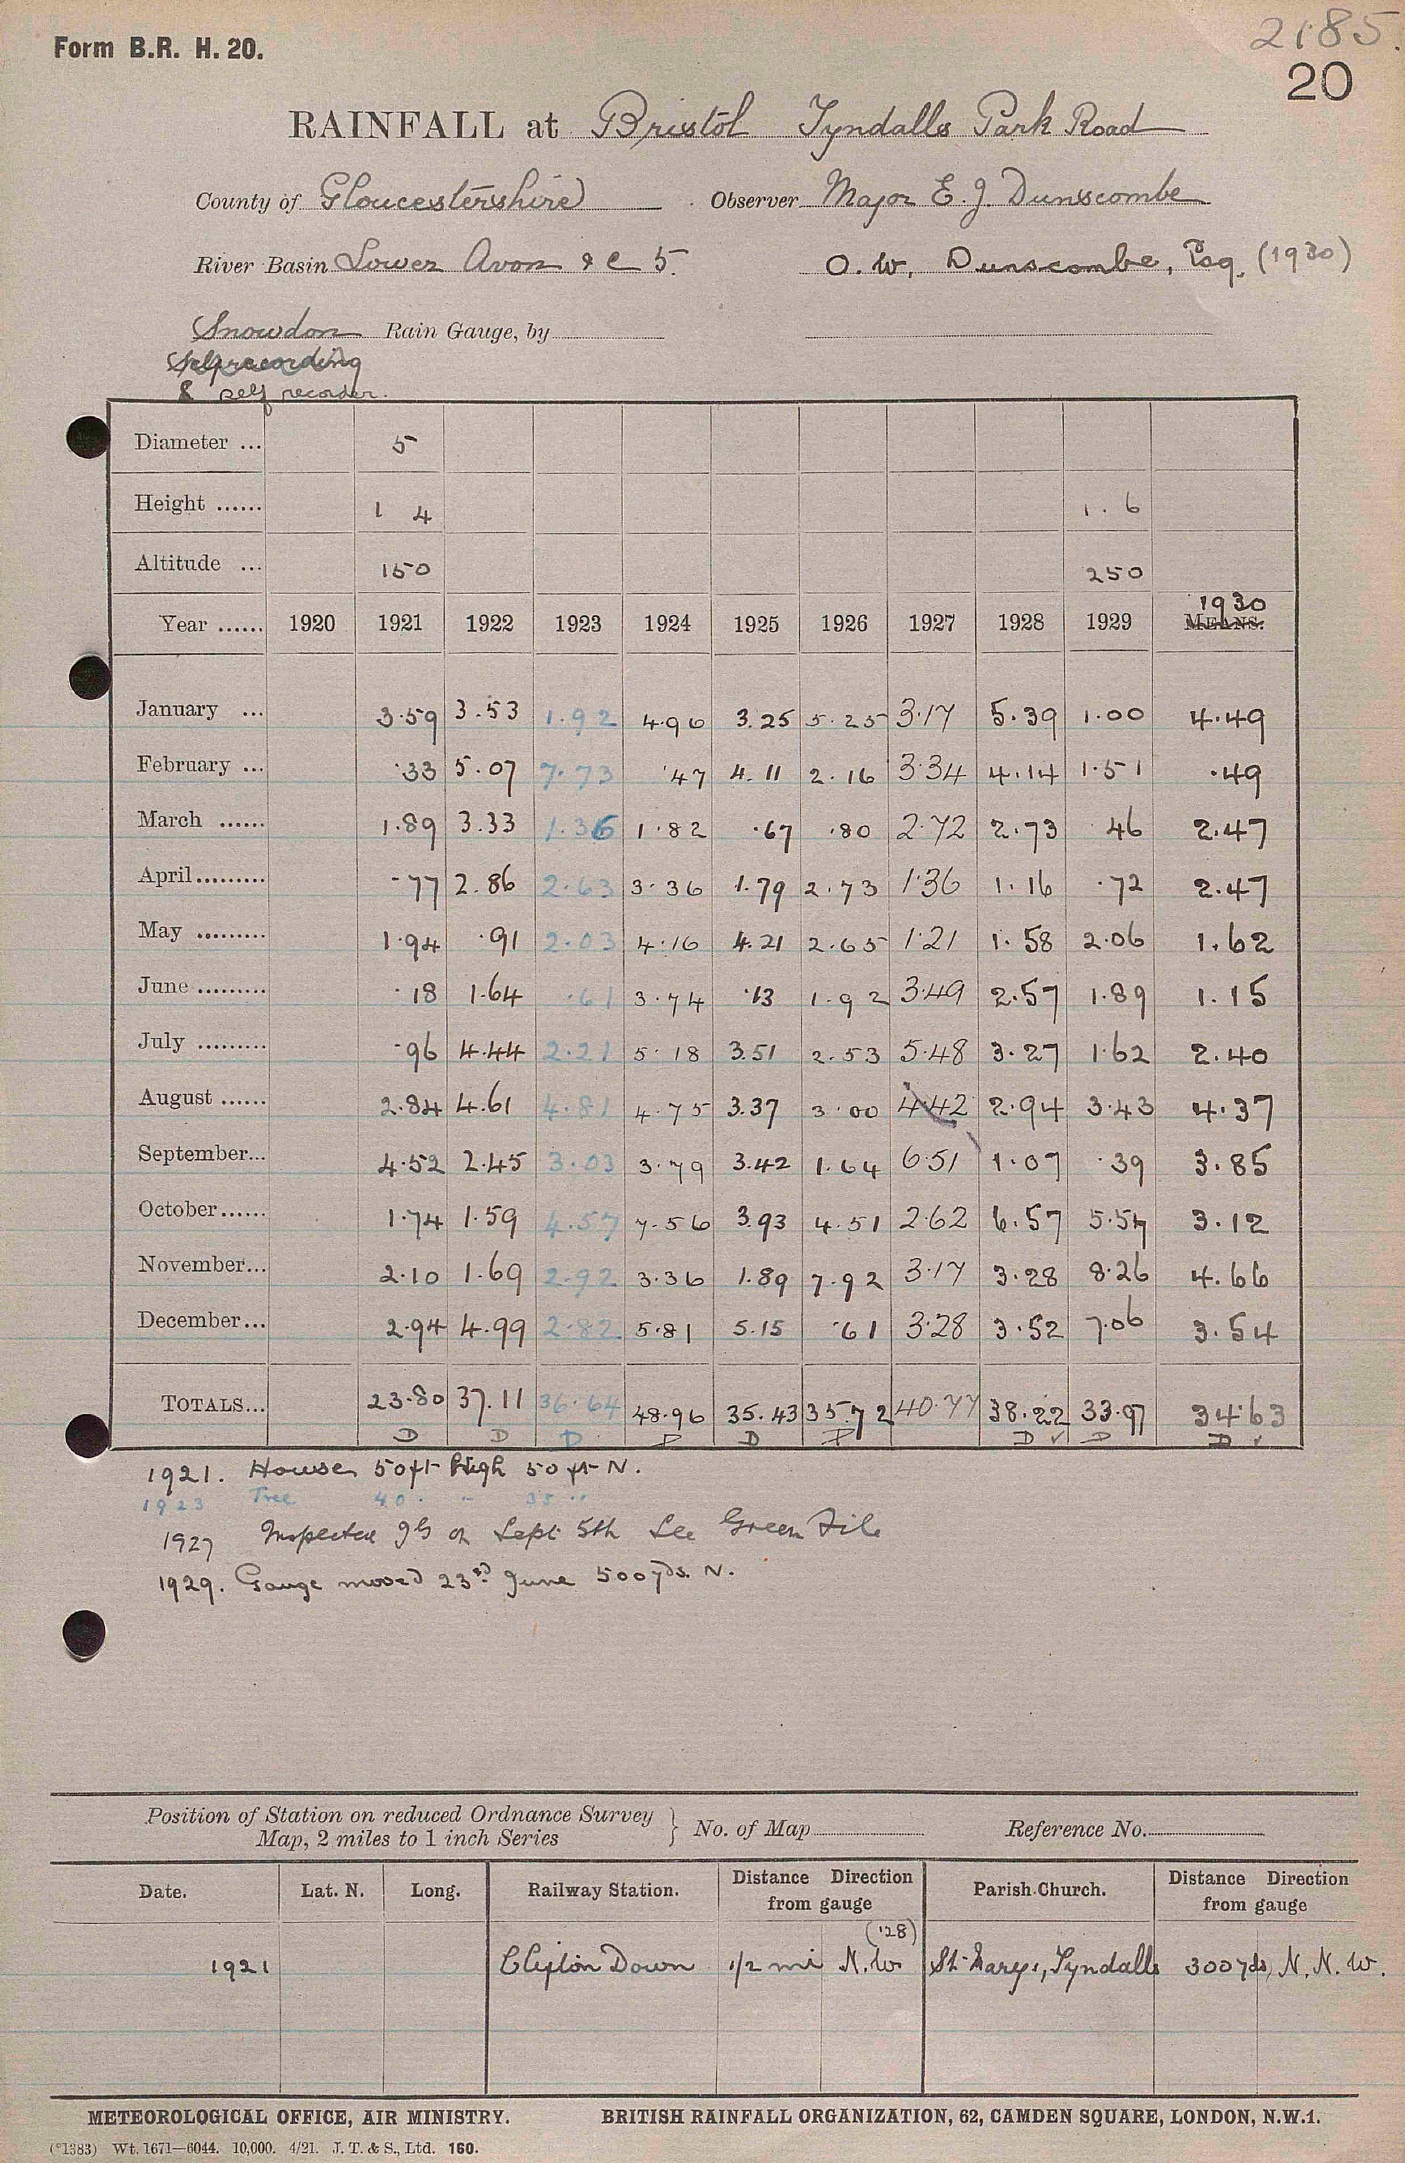 2185.
Form B.R. H. 20.
20
RAINFALL at Bristol Tyndalls Park Road
County of Gloucestershire Observer Major E. J. Dunscombe
River Basin Lower Avon &c 5. O. W. Dunscombe, Esq. (1930)
Snowdon Rain Gauge, by
Selfrecording
& self recorder.
Diameter ... 5
Height ...... 1 4 1 . 6
Altitude ... 150 250
Year ...... 1920 1921 1922 1923 1924 1925 1926 1927 1928 1929 MEANS. 1930
January ... 3.59 3.53 1.92 4.96 3.25 5.25 3.17 5.39 1.00 4.49
February ... .33 5.07 7.73 .47 4.11 2.16 3.34 4.14 1.51 .49
March ...... 1.89 3.33 1.36 1.82 .67 .80 2.72 2.73 .46 2.47
April......... .77 2.86 2.63 3.36 1.79 2.73 1.36 1.16 .72 2.47
May ......... 1.94 .91 2.03 4.16 4.21 2.65 1.21 1.58 2.06 1.62
June ......... .18 1.64 .61 3.74 .13 1.92 3.49 2.57 1.89 1.15
July ......... .96 4.44 2.21 5.18 3.51 2.53 5.48 3.27 1.62 2.40
August ...... 2.84 4.61 4.81 4.75 3.37 3.00 4.42 2.94 3.43 4.37
September... 4.52 2.45 3.03 3.79 3.42 1.64 6.51 1.07 .39 3.85
October...... 1.74 1.59 4.57 7.56 3.93 4.51 2.62 6.57 5.57 3.12
November... 2.10 1.69 2.92 3.36 1.89 7.92 3.17 3.28 8.26 4.66
December... 2.94 4.99 2.82 5.81 5.15 .61 3.28 3.52 7.06 3.54
TOTALS... 23.80 37.11 36.64 48.96 35.43 35.72 40.77 38.22 33.97 34.63
D D D D D D D ✓ D D ✓
1921. House 50ft high 50 ft N.
1923 Tree 40 " 35 "
1927 Inspected JG on Sept 5th See Green File
1929. Gauge moved 23rd June 500 yds. N.
Position of Station on reduced Ordnance Survey Map, 2 miles to 1 inch Series } No. of Map Reference No.
Date. Lat. N. Long. Railway Station. Distance Direction from gauge Parish Church. Distance Direction from gauge
('28)
1921 Clifton Down 1/2 mi N.W St. Marys, Tyndalls 300 yds, N. N. W.
METEOROLOGICAL OFFICE, AIR MINISTRY. BRITISH RAINFALL ORGANIZATION, 62, CAMDEN SQUARE, LONDON, N.W.1.
(*1383) Wt. 1671—6044. 10,000. 4/21. J. T. & S., Ltd. 160.